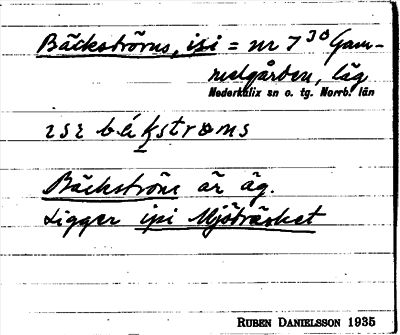 Bäckströms, isi = nr 7³⁰ Gam-
melgården, läg
Nederkalix sn o. tg. Norrb. län
Bäckström är äg.
Ligger ipi Mjöträsket
RUBEN DANIELSSON 1935